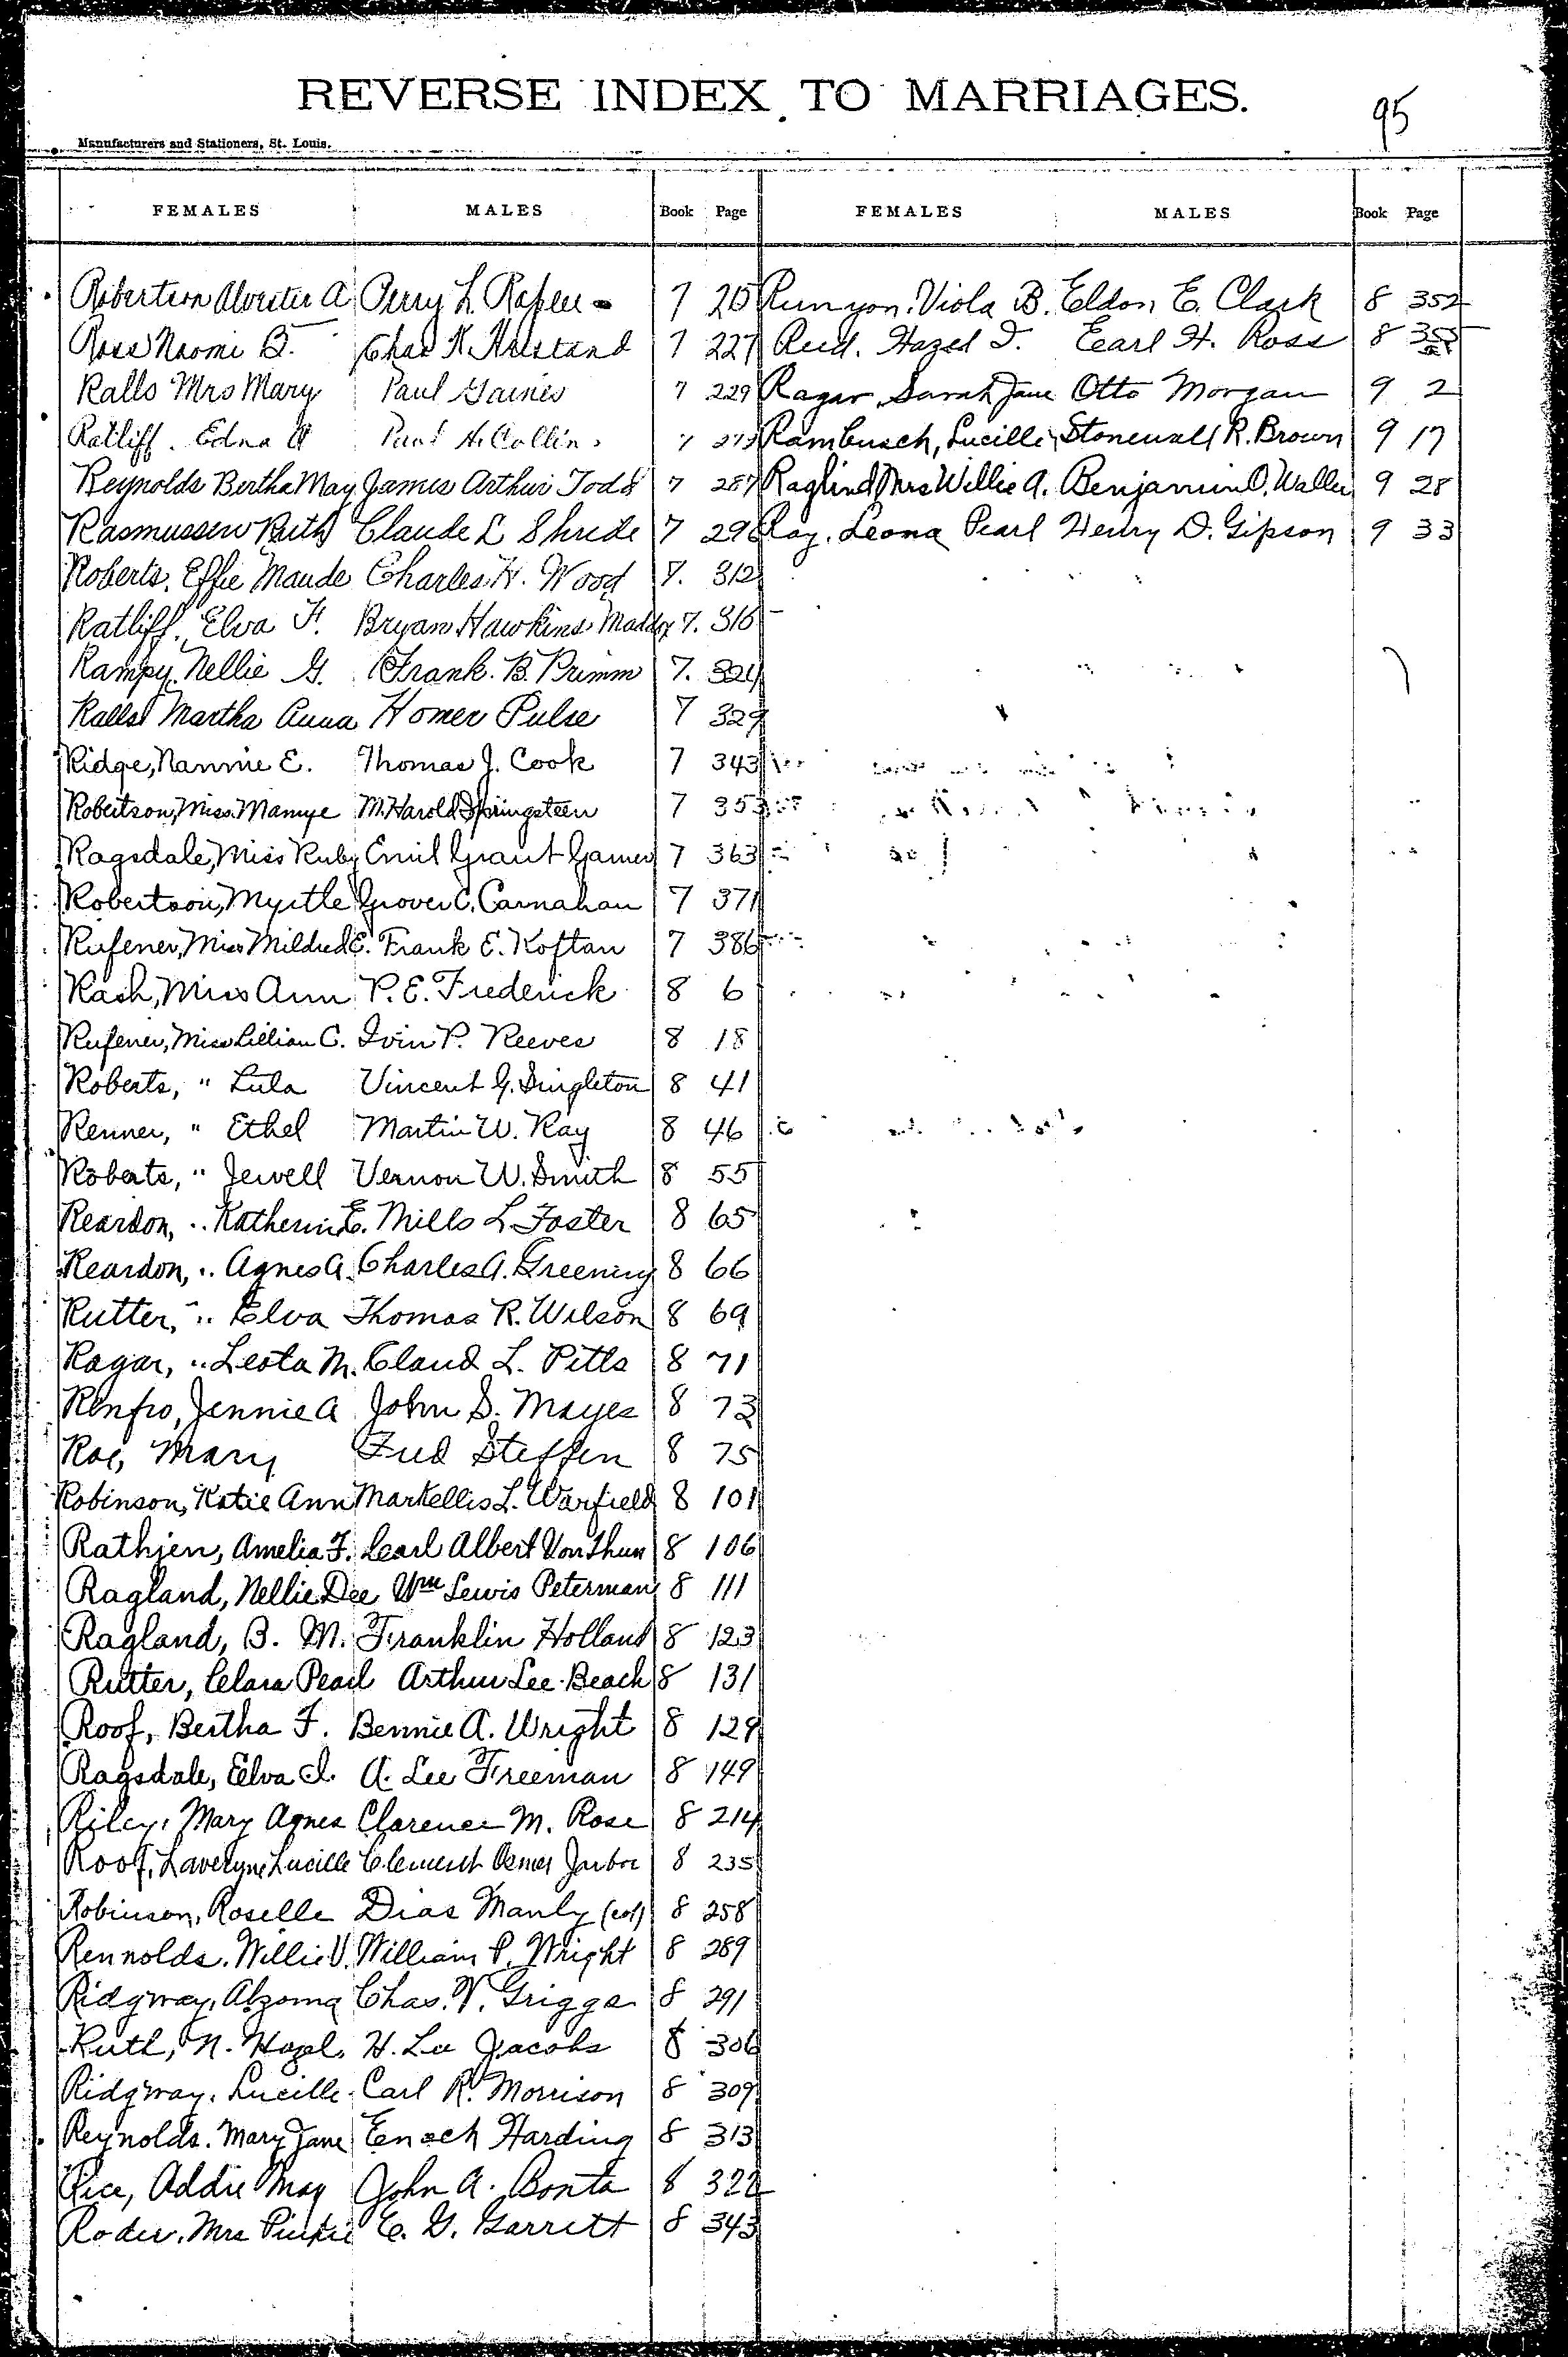 REVERSE INDEX TO MARRIAGES.
95
Manufacturers and Stationers, St. Louis.
FEMALES MALES Book Page FEMALES MALES Book Page
Robertson A Perry L. 7 215
Ross Naomi B. Chas K. 7 227
Ralls Mrs Mary Paul Gaines 7 229
Ratliff. Edna A Paul H. Collins 7
Reynolds Bertha May James Arthur Todd 7 287
Rasmussen Ruth Claude L Shrede 7 296
Roberts. Effie Maude Charles H. Wood 7. 312
Ratliff. Elva F. Bryan Hawkins Maddox 7. 316
Rampy. Nellie G. Frank. B. Primm 7. 324
Ralls Martha Anna Homer Pulse 7 329
Ridge, Nannie E. Thomas J. Cook 7 343
Robertson, Miss Mamye M. Harold Springsteen 7 353
Ragsdale, Miss Ruby Emil Grant Garner 7 363
Robertson, Myrtle Grover C. Carnahan 7 371
Rufener, Miss Mildred E. Frank E. Koftan 7 386
Rash, Miss Ann P. E. Frederick 8 6
Rufener, Miss Lillian C. Ivin P. Reeves 8 18
Roberts, " Lula Vincent G. Singleton 8 41
Renner, " Ethel Martin W. Ray 8 46
Roberts, " Jewell Vernon W. Smith 8 55
Reardon, " Katherin E. Mills L Foster 8 65
Reardon, " Agnes A. Charles A. Greening 8 66
Rutter, " Elva Thomas R. Wilson 8 69
Ragar, " Leota M. Claud L. Pitts 8 71
Renfro, Jennie A John S. Mayes 8 73
Roe, Mary Fred Steffen 8 75
Robinson, Katie Ann Markellis L. Warfield 8 101
Rathjen, Amelia F. Carl Albert Von Thun 8 106
Ragland, Nellie Dee Wm Lewis Peterman 8 111
Ragland, B. M. Franklin Holland 8 123
Rutter, Clara Pearl Arthur Lee Beach 8 131
Roof, Bertha F. Bennie A. Wright 8 129
Ragsdale, Elva I. A. Lee Freeman 8 149
Riley, Mary Agnes Clarence M. Rose 8 214
Roof, Laveryne Lucille Clement Osmer Jarboe 8 235
Robinson, Roselle Dias Manly (col) 8 258
Rennolds. Willie V. William P. Wright 8 289
Ridgway, Alzoma Chas. V. Griggs 8 291
Ruth, N. Hazel. H. Lee Jacobs 8 306
Ridgway. Lucille. Carl R. Morrison 8 309
Reynolds. Mary Jane Enoch Harding 8 313
Rice, Addie May John A. Bonta 8 322
Roder. Mrs Pinkie E. G. Garrett 8 343
Runyon. Viola B. Eldon E. Clark 8 352
Reed. Hazel I. Earl H. Ross 8
Ragar, Sarah Jane Otto Morgan 9 2
Rambusch, Lucille Stonewall R. Brown 9 17
Raglind Mrs Willie A. Benjamin O. Waller 9 28
Ray. Leona Pearl Henry D. Gipson 9 33